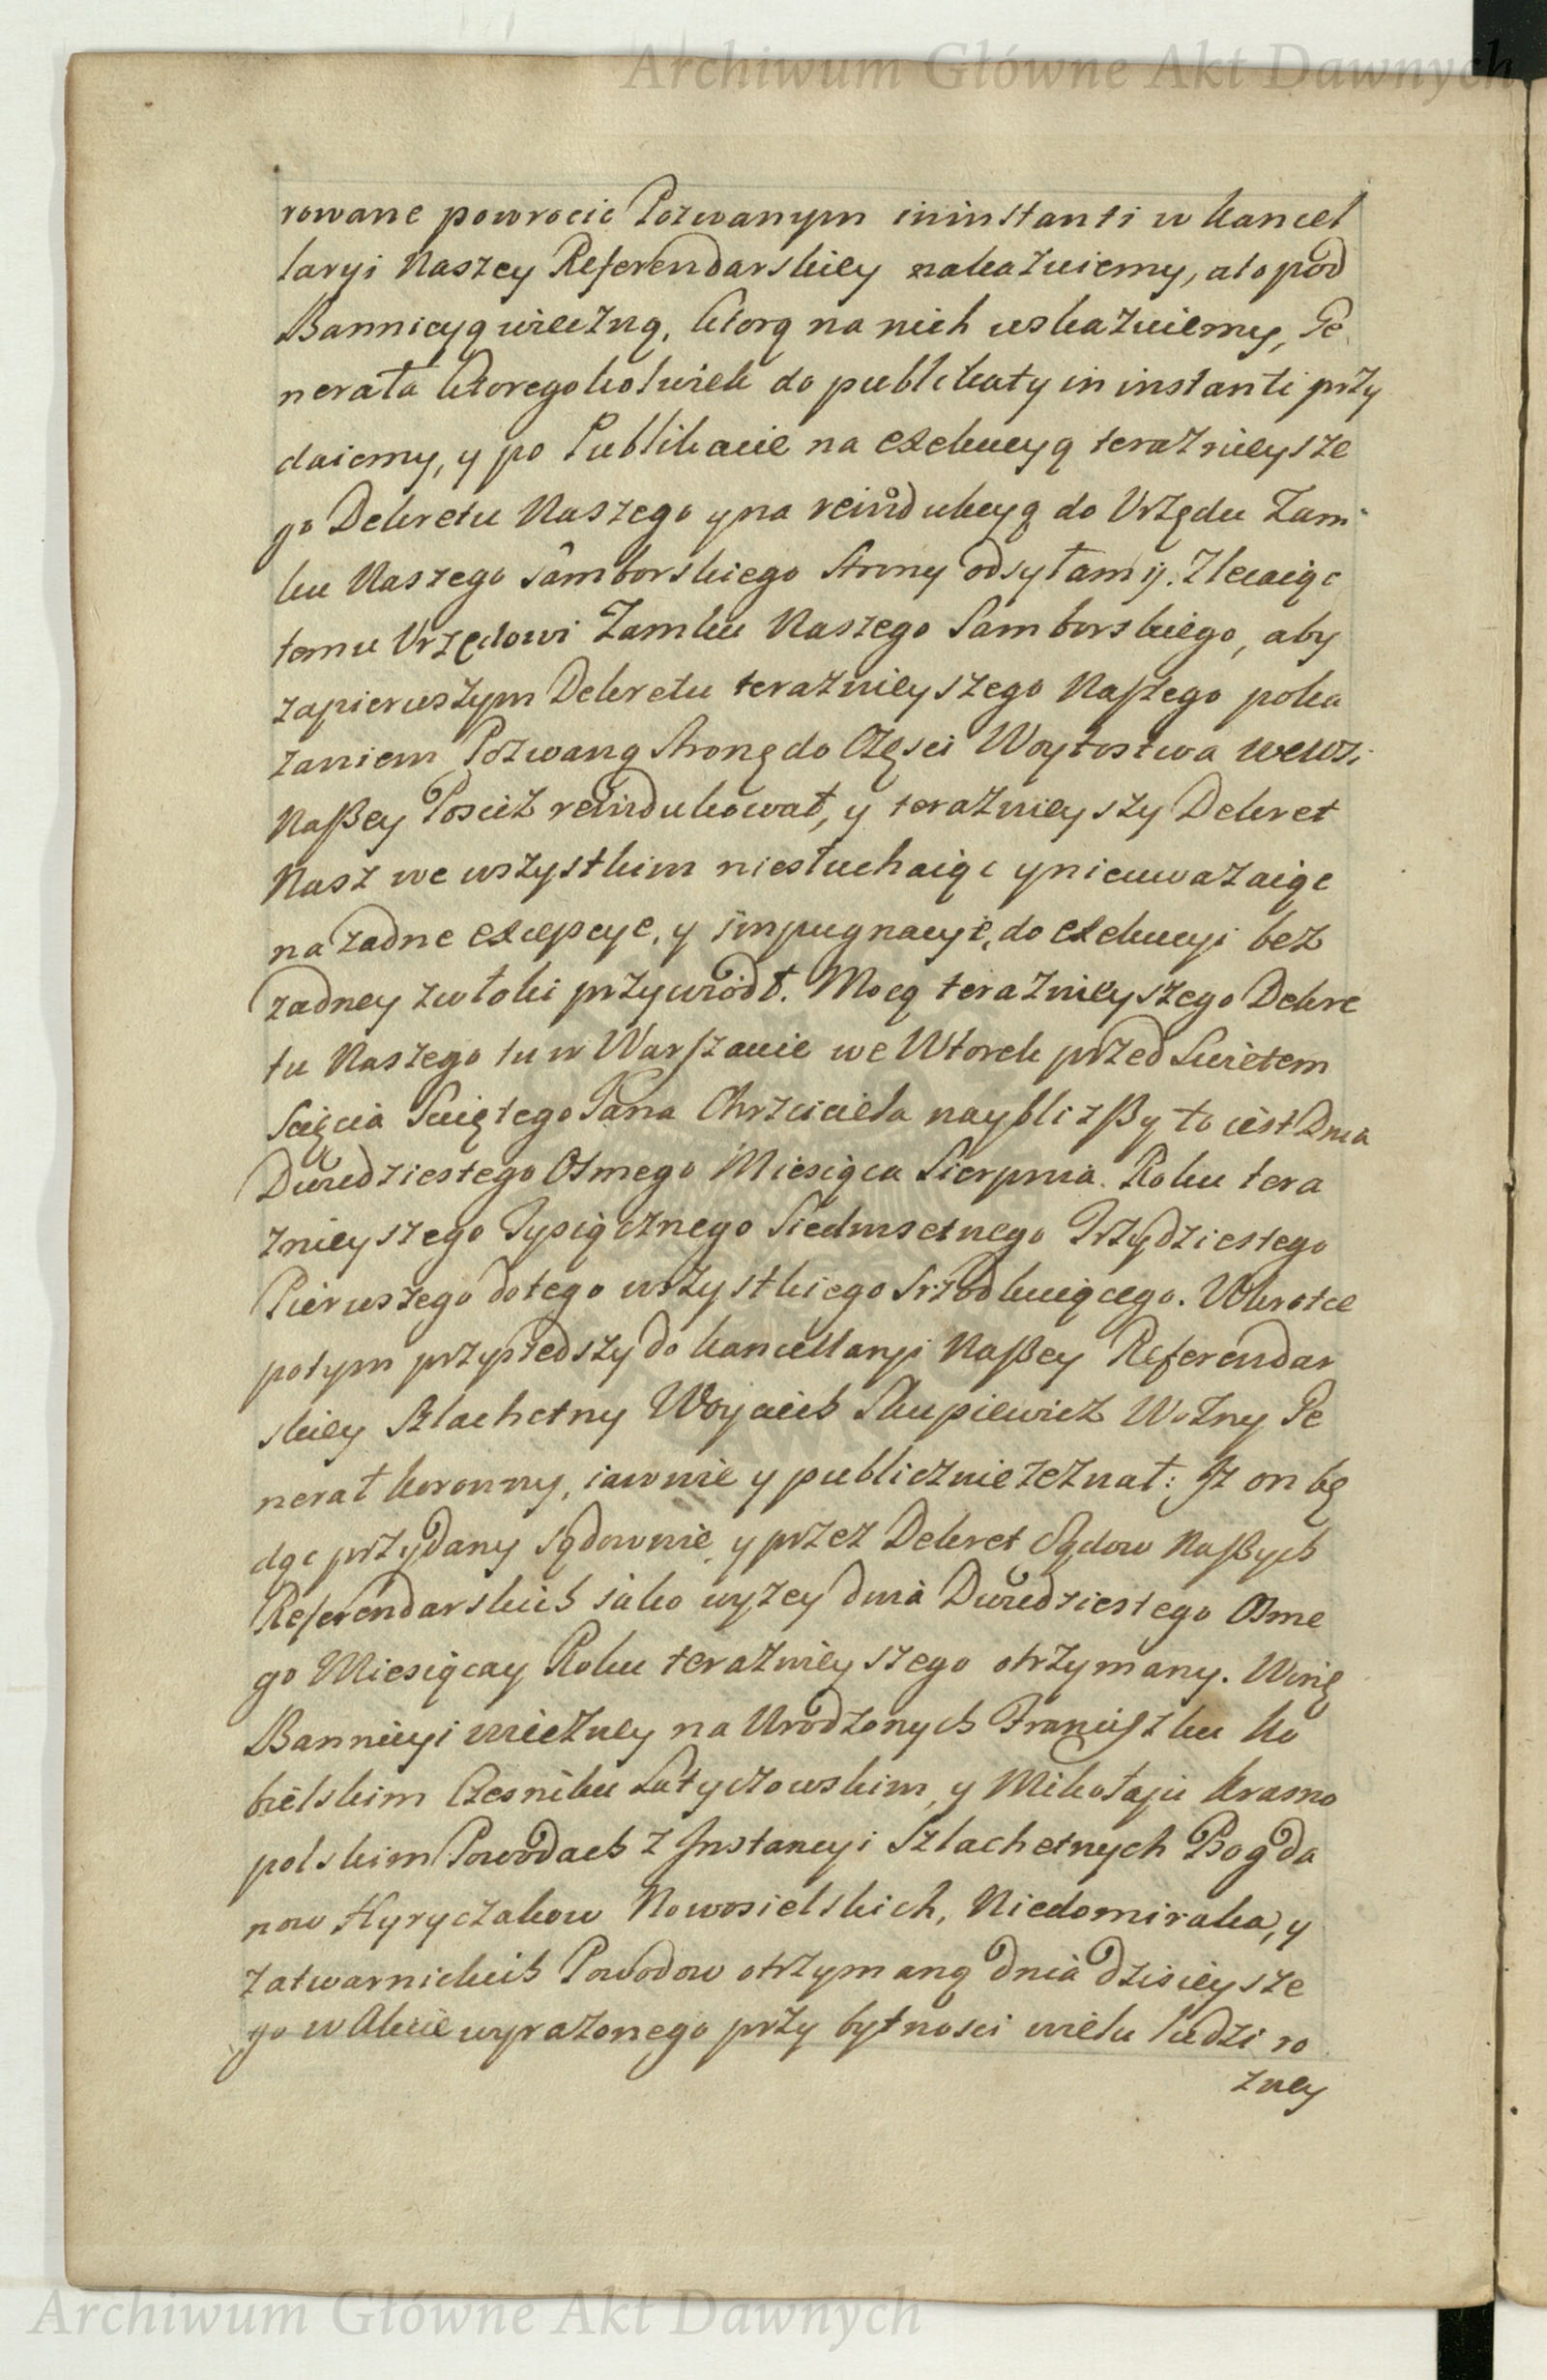 Archiwum Główne Akt Dawnych
rowane powrocić Pozwanym in instanti w Kancel
laryi Naszey Referendarskiey nakazuiemy, a to pod
Bannicyą wieczną, ktorą na nich wskazuiemy, Ge
nerała ktoregokolwiek do publikaty in instanti przy
daiemy, y po Publikacie na exekucyą teraznieysze
go Dekretu Naszego y na reindukcyą do Urzędu Zam
ku Naszego Samborskiego Strony odsyłamy. Zlecaiąc
temu Urzędowi Zamku Naszego Samborskiego, aby
zapierwszym Dekretu teraznieyszego Naszego poka
zaniem Pozwaną Stronę do Częsci Woytostwa we wsi
Naßey Posicz reindukował, y teraznieyszy Dekret
Nasz we wszystkim niesłuchaiąc y nieuwazaiąc
na zadne excepcye, y impugnacye, do exekucyi bez
zadney zwłoki przywiodł. Mocą teraznieyszego Dekre
tu Naszego tu w Warszawie we Wtorek przed Swietem
Scięcia Swiętego Jana Chrzciciela nayblizßy to iest Dnia
Dwudziestego Osmego Miesiąca Sierpnia. Roku tera
znieyszego Tysiącznego Siedmsetnego Trzydziestego
Pierwszego do tego wszystkiego srzodkuiącego. Wkrotce
potym przyszedszy do Kancellaryi Naßey Referendar
skiey Szlachetny Woyciech Skupiewicz Wozny Ge
nerał Koronny, iawnie y publicznie zeznał: Iz on bę
dąc przydany sądownie y przez Dekret Sądow Naßych
Referendarskich iako wyzey dnia Dwudziestego Osme
go Miesiąca y Roku teraznieyszego otrzymany. Winę
Bannicyi wieczney na Urodzonych Franciszku Ko
bielskim Czesniku Latyczowskim, y Mikołaju Krasno
polskim Powodach z Instancyi Szlachetnych Bogda
now Hyryczakow Nowosielskich, Niedomiraka, y
Zatwarnickich Powodow otrzymaną dnia dzisieysze
go w Akcie wyrazonego przy bytnosci wielu ludzi ro
zney
Archiwum Główne Akt Dawnych